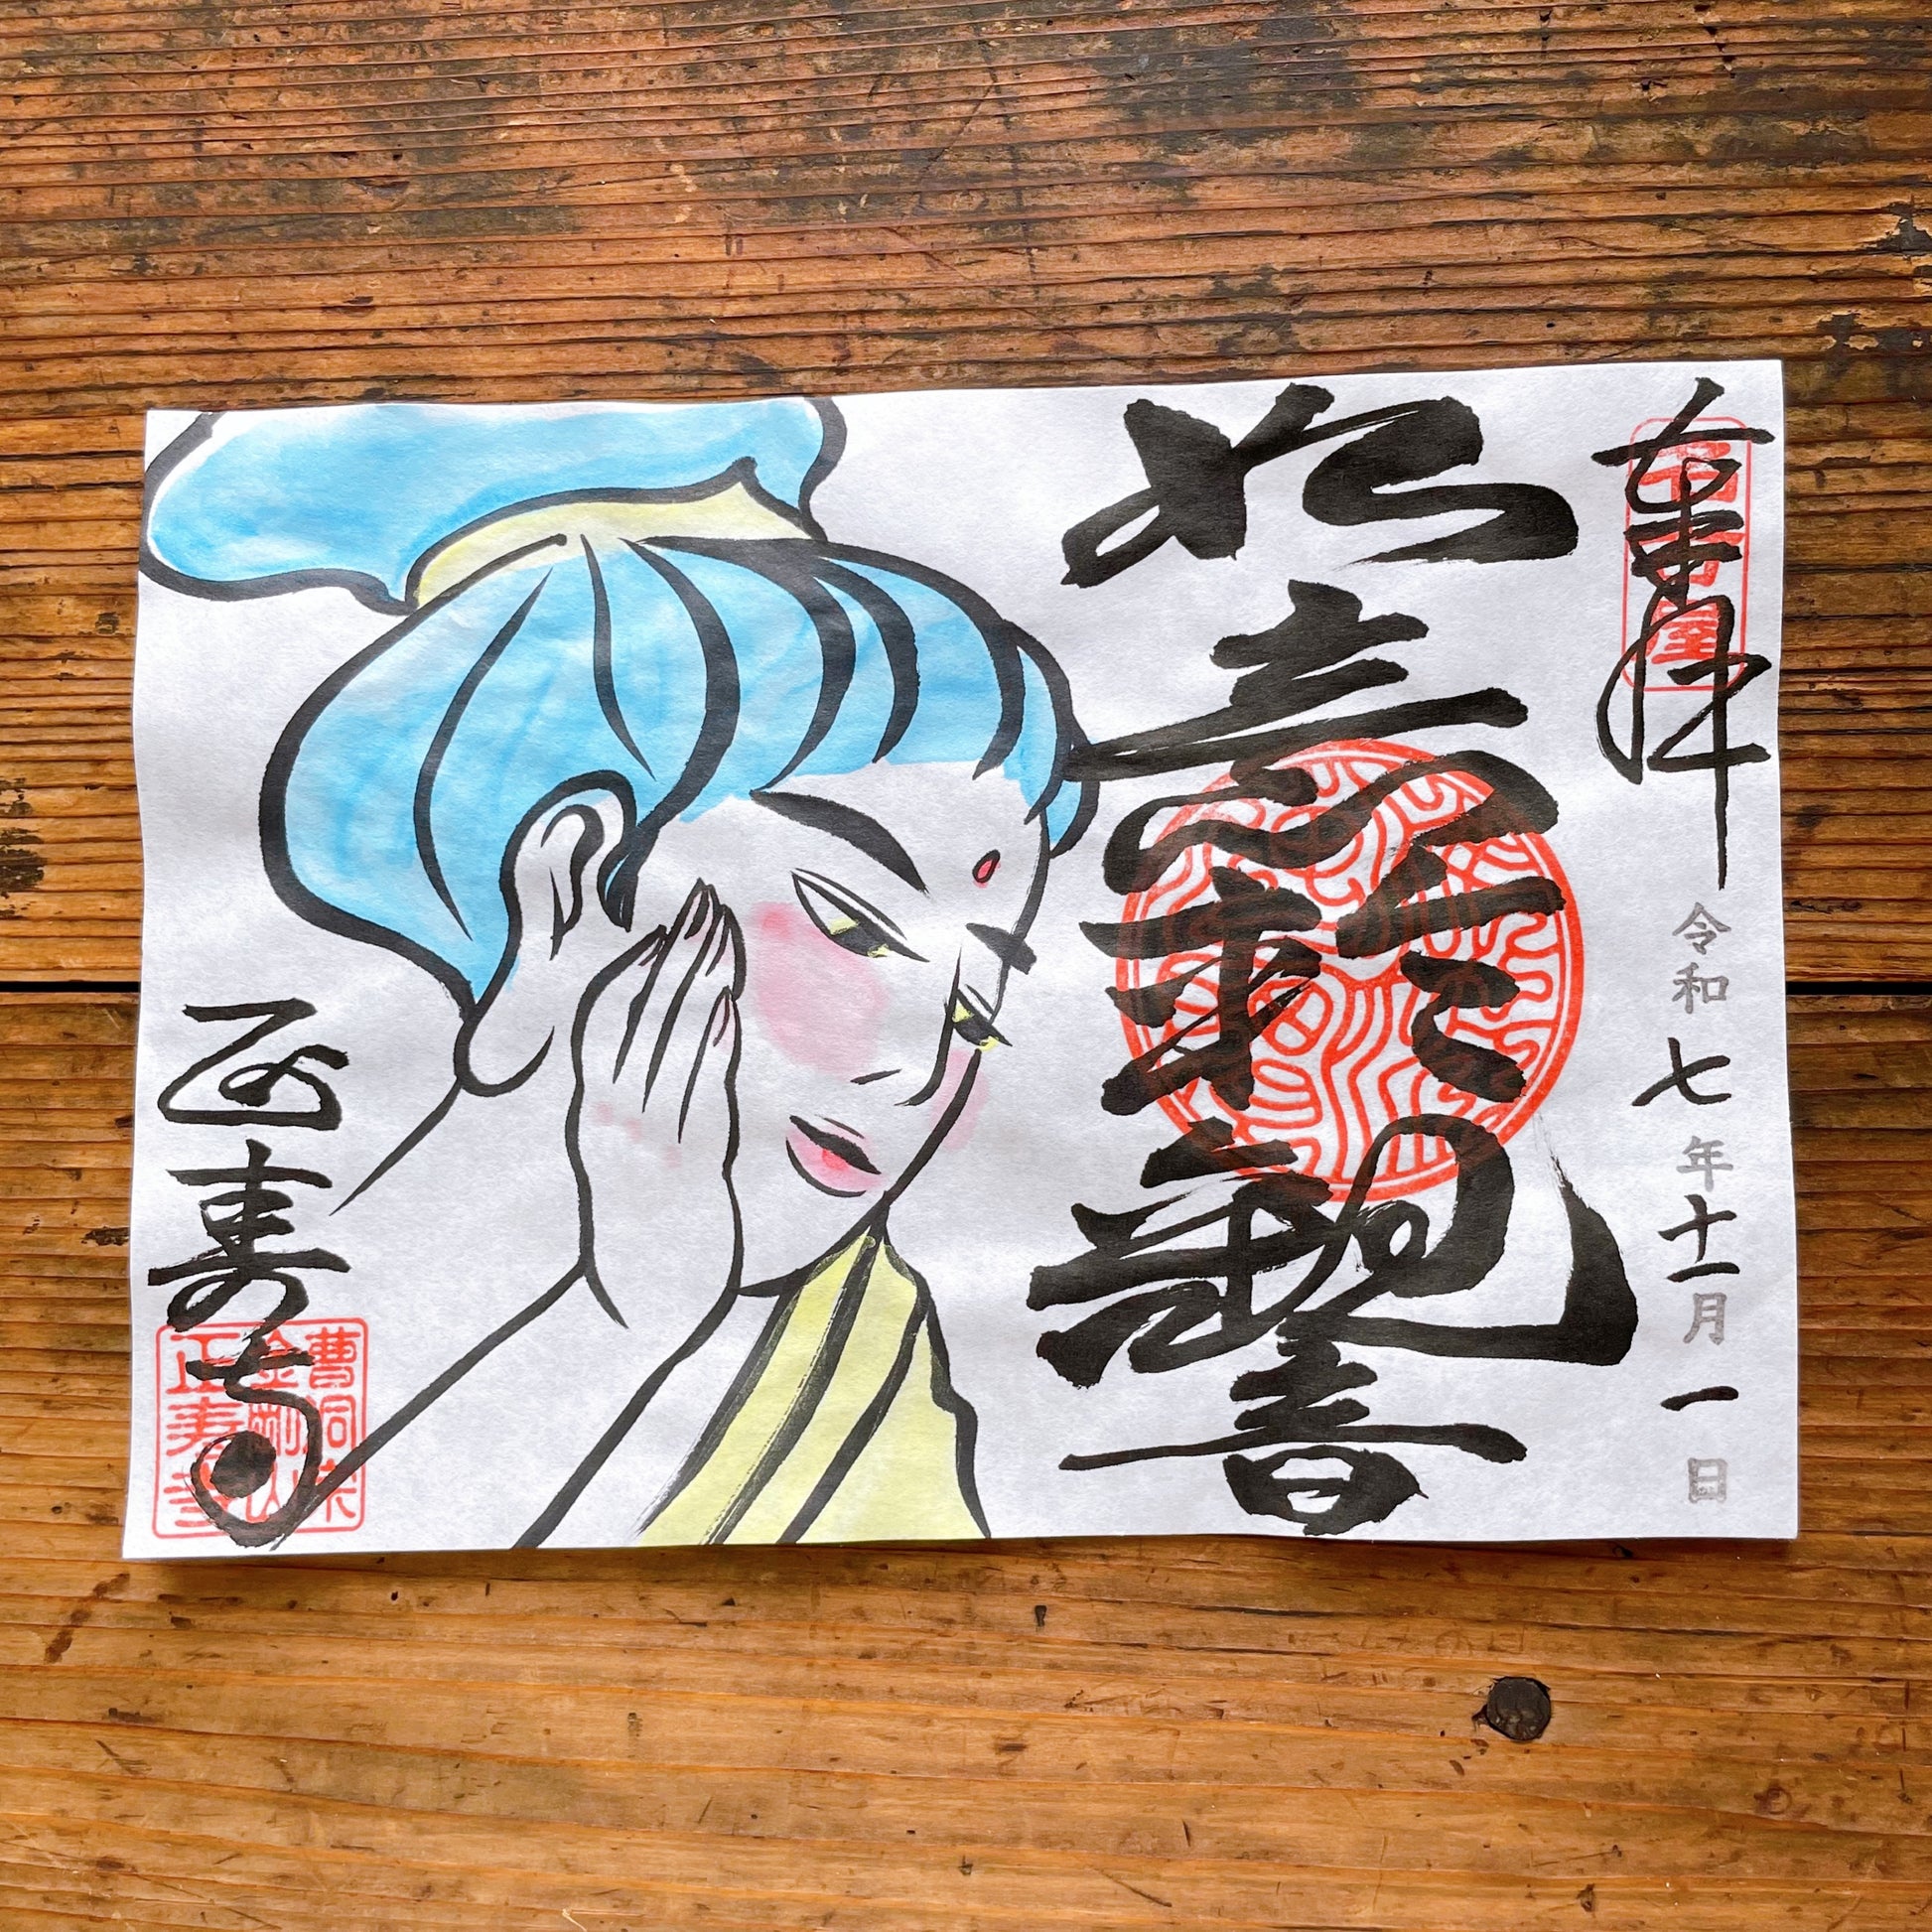 奉拝
令和七年十一月一日
如意輪観音
正寿寺
曹洞宗
金剛山
正寿寺